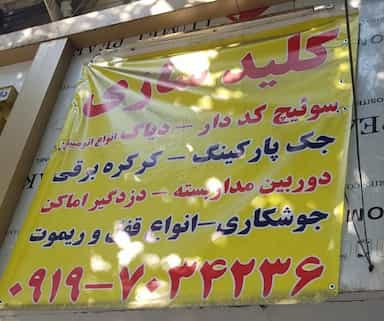 کلید سازی
سوئیچ کد دار – دیاگ انواع اتومبیل
جک پارکینگ – کرکره برقی
دوربین مداربسته – دزدگیر اماکن
جوشکاری – انواع قفل و ریموت
۰۹۱۹-۷۰۳۴۲۳۶